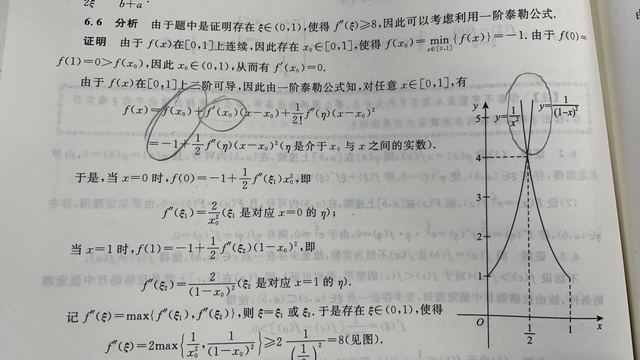 2ξ b+a
6.6 分析 由于题中是证明存在ξ∈(0,1),使得f″(ξ)≥8,因此可以考虑利用一阶泰勒公式.
证明 由于f(x)在[0,1]上连续,因此存在x₀∈[0,1],使得f(x₀)=min_{x∈[0,1]}{f(x)}=-1.由于f(0)=
f(1)=0>f(x₀),因此x₀∈(0,1),从而有f′(x₀)=0.
由于f(x)在[0,1]上二阶可导,因此由一阶泰勒公式知,对任意x∈[0,1],有
f(x)=f(x₀)+f′(x₀)(x-x₀)+1/2! f″(η)(x-x₀)²
=-1+1/2 f″(η)(x-x₀)²(η是介于x₀与x之间的实数).
于是,当x=0时,f(0)=-1+1/2 f″(ξ₁)x₀²,即
f″(ξ₁)=2/x₀²(ξ₁是对应x=0的η);
当x=1时,f(1)=-1+1/2 f″(ξ₂)(1-x₀)²,即
f″(ξ₂)=2/(1-x₀)²(ξ₂是对应x=1的η).
记f″(ξ)=max{f″(ξ₁),f″(ξ₂)},则ξ=ξ₁或ξ₂.于是存在ξ∈(0,1),使得
f″(ξ)=2max{1/x₀²,1/(1-x₀)²}≥2 1/(1/2)²=8(见图).
y
y=1/x²
y=1/(1-x)²
5
4
3
2
1
O
1/2
1
x